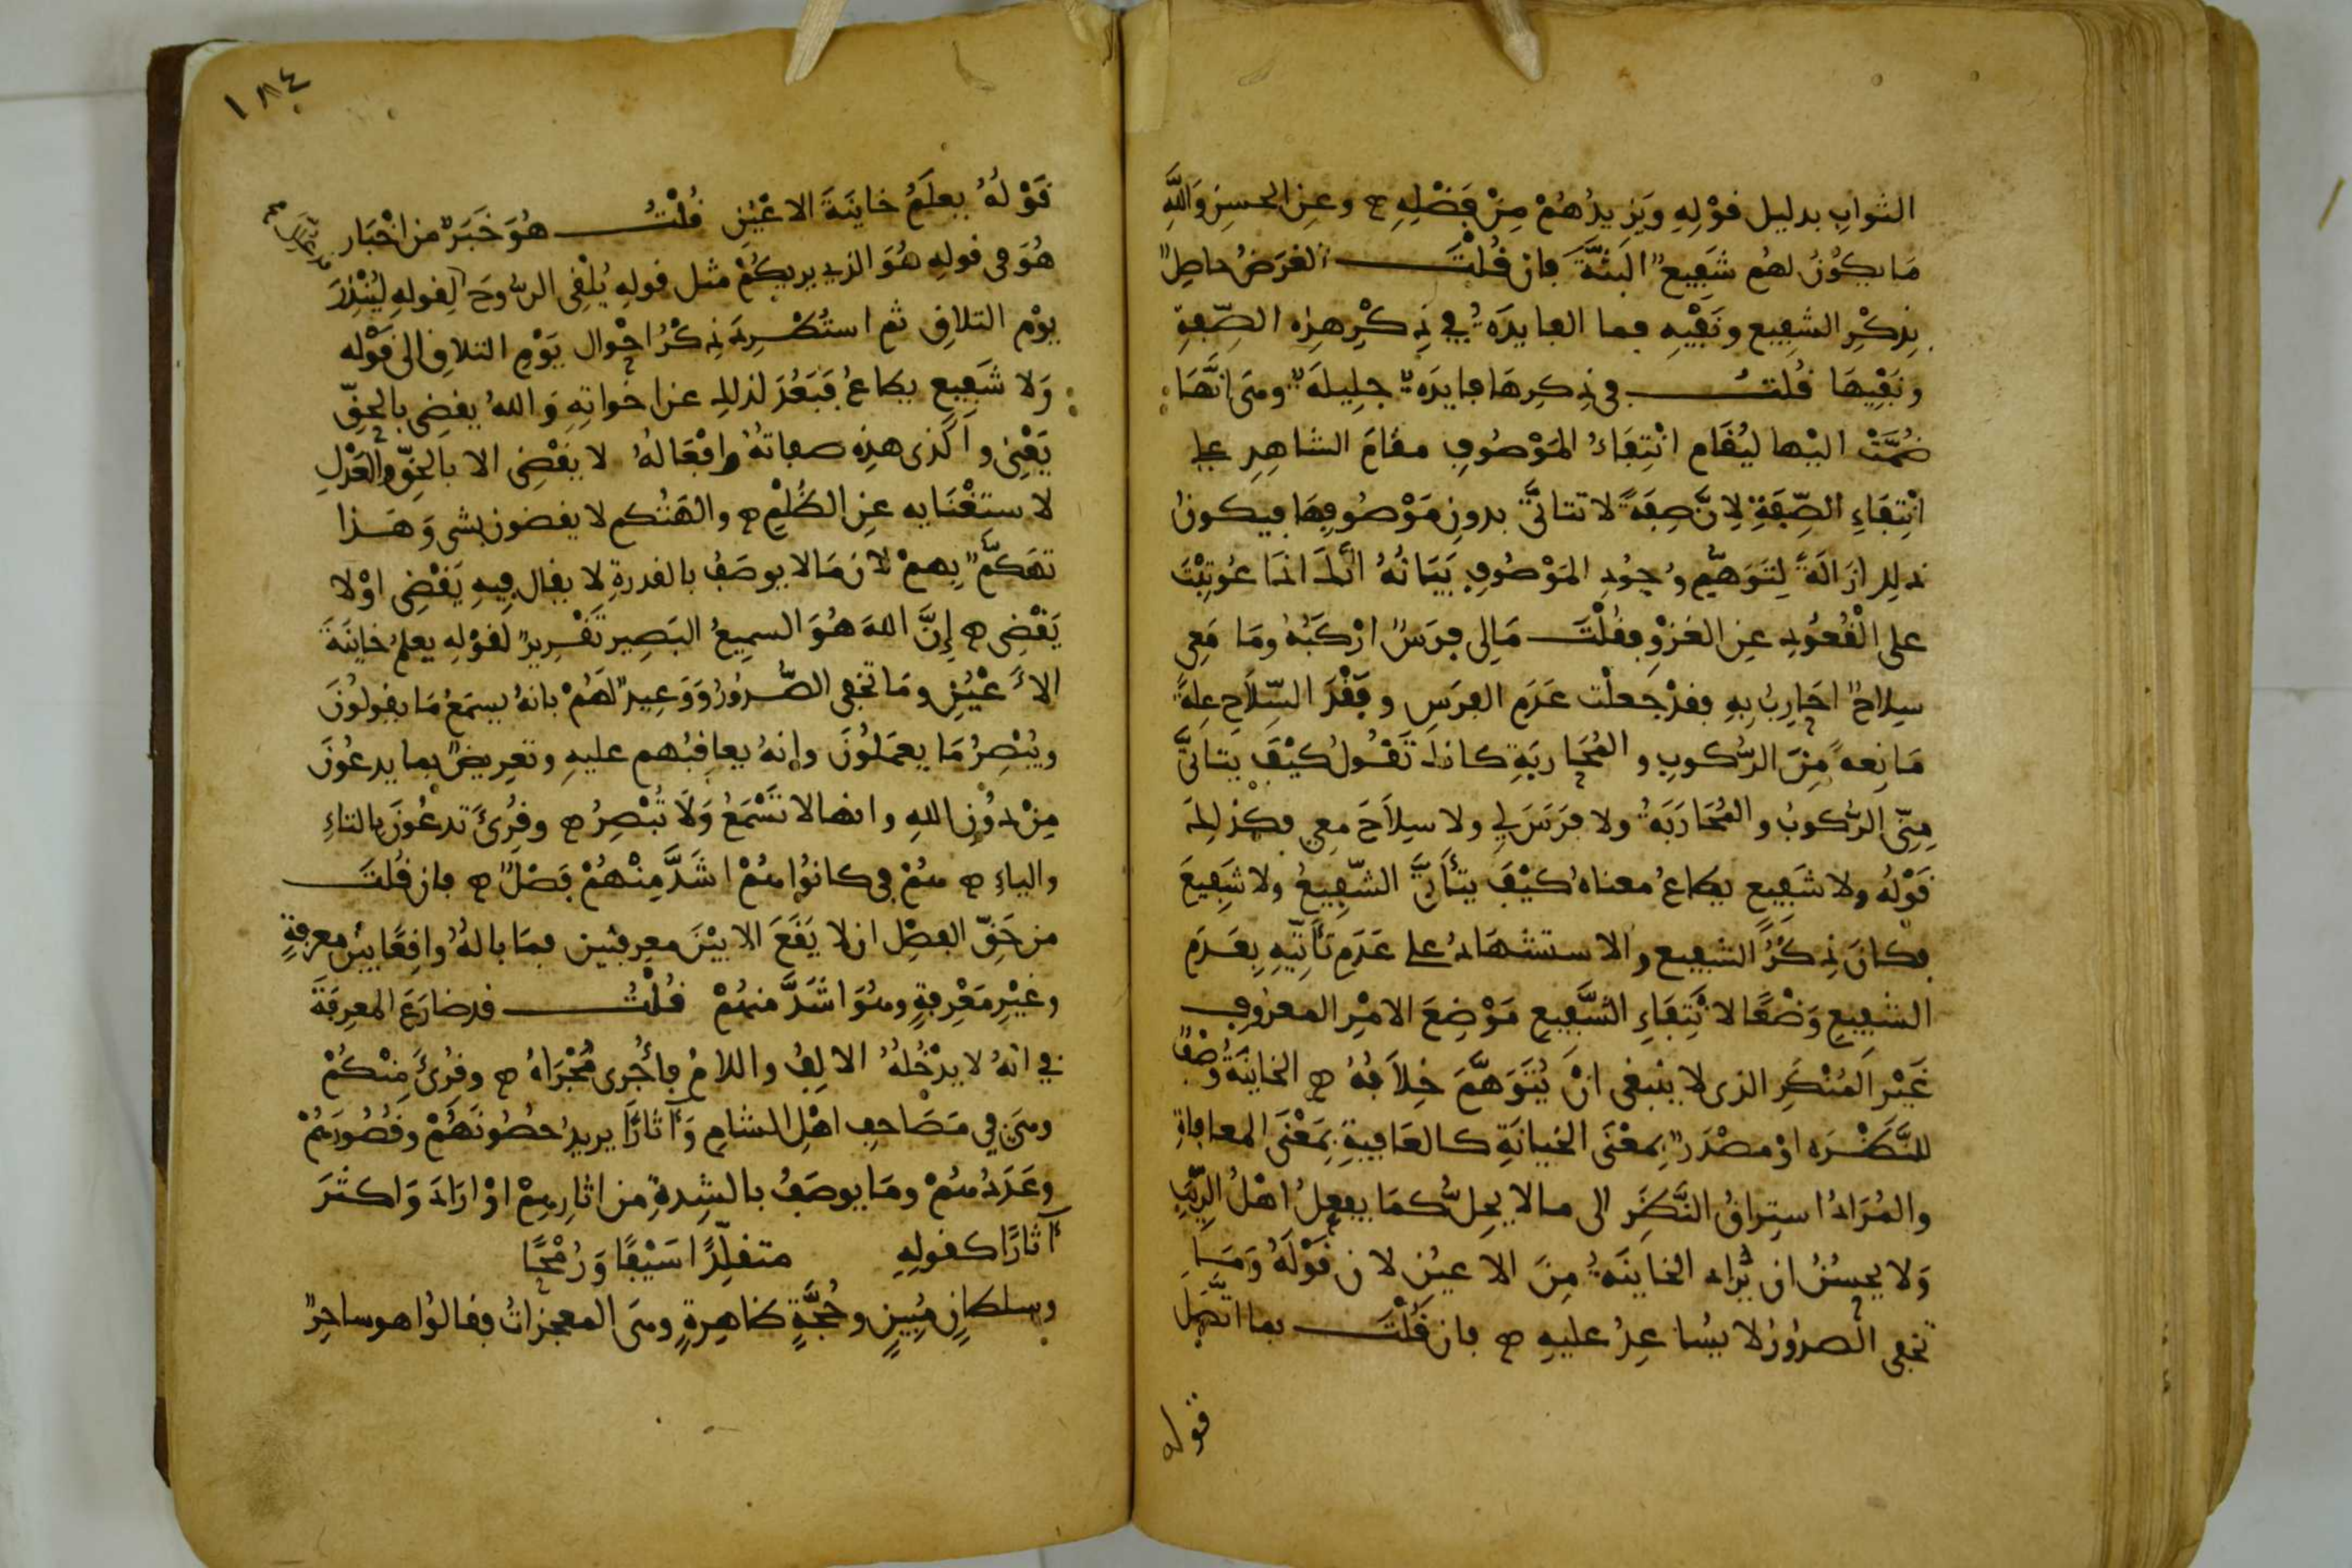 الثواب بدليل قوْلِهِ وَيَزِيدُهُمْ مِنْ فَضْلِهِ ۝ وعن الحسن وَاللَّهِ
مَا يكُونُ لهُم شَفِيعٌ الْبَتَّةَ فان قُلْتَ الغَرَضُ حاصِلٌ
بِذكْرِ الشفِيع ونَفْيِهِ فما الفايدَةُ في ذِكْرِ هذِه الصِّفةِ
ونَفْيِهَا قُلتُ في ذِكرِهَا فايدَةٌ جلِيلَةٌ وهي انَّهَا
ضُمَّتْ اليْها ليُقَام انْتِفَاءُ المَوْصُوفِ مقَامَ الشاهِدِ على
انْتِفَاءِ الصِّفَةِ لِانَّ صِفَةً لا تتاتَّى بدونِ مَوْصُوفِهَا فيكونُ
ذلك ازَالَةً لِتَوَهُّمِ وُجُودِ المَوْصُوفِ بَيَانُهُ انَّكَ اذَا عُوتِبْتَ
على الْقُعُودِ عنِ الغزْوِ فقُلْتَ مَالِى فرَسٌ ارْكَبُهُ ومَا مَعِى
سِلاحٌ احَارِبُ بِهِ فقدْ جَعلْت عَدَمَ الفرَسِ وفَقْدَ السِّلَاحِ عِلةً
مَانِعةً مِنَ الرُّكوبِ والمُحَاربَةِ كانك تَقُولُ كيْفَ يتاتَّى
مِنِّى الرُّكوبُ والمُحَارَبَةُ ولا فرَسَ لِي ولا سِلَاحَ مَعِي فكذلِكَ
قَوْلُهُ ولا شَفِيع يطاعُ معناهُ كيْفَ يتأَتَّى الشّفِيعُ ولا شَفِيعَ
فكانَ ذِكْرُ الشفيع والاستشهَادُ على عَدَمِ تَأَتِّيهِ بِعَدَمِ
الشفِيعِ وَضْعًا لانْتِفَاءِ الشَّفِيعِ مَوْضِعَ الامْرِ المعرُوفِ
غَيْر المُنْكَرِ الذى لا ينبغى انْ يُتَوَهَّمَ خِلَافُهُ ۝ الخاينَةُ وَصْفٌ
للنَّظْرَه اوْ مصْدَرٌ بِمعْنَى الخيانَةِ كالعَافِيةِ بِمَعْنَى المعافاةِ
والمُرَادُ استِراقُ النَّظَرِ الى مالا يحِلُّ كمَا يفعلُ اهْلُ الرِّيَبِ
وَلا يحسُنُ ان يُراد الخاينَةُ مِنَ الاعيُنِ لان قَوْلَهُ وَمَا
تخفى الصدُورُ لا يسَاعِدُ عليهِ ۝ فان قُلْتَ بما اتَّصَلَ
قوله
١٨٤
قَوْلُهُ يعلَمُ خاينَةَ الاعْيُنِ قُلْتُ هُوَ خَبَرٌ من اخْبَار
هُوَ فى قولهِ هُوَ الذى يريكُمْ مثل قولهِ يُلْقِى الرُّوحَ لقولهِ لِيُنْذِرَ
يوْم التلاقِ ثم استُطْرِدَ ذِكْرُ احْوال يَوْمِ التلاقِ الى قَوْلهِ
وَلا شَفِيعٍ يطاعُ فَبَعُدَ لذلك عن اخَواتِهِ وَاللهُ يقضِى بالحقِّ
يَعْنِى والذى هذِه صفاتهُ وافْعَالهُ لا يَقْضِى الا بالحقِّ والعَدْلِ
لاستغْنَايه عنِ الظُّلْمِ ۝ والهَتُكم لا يقضون بشى وَهَذا
تهَكُّمٌ بِهمْ لانَّ مَالا يوصَفُ بالقدرةِ لا يقال فِيهِ يَقْضِى اوْ لا
يَقْضِى ۝ إِنَّ اللهَ هُوَ السمِيعُ البَصِير تَقْرِيرٌ لقوْلهِ يعلمُ خاينَةَ
الأَعْيُنِ ومَا تخفى الصُّدُورُ وَوَعِيدٌ لهُمْ بانهُ يسمَعُ مَا يقولُونَ
ويُبْصِرُ مَا يعمَلُونَ وانهُ يعاقِبُهم عليهِ وتعرِيضٌ بما يدعُونَ
مِنْ دُونِ اللهِ وانها لا تَسْمَعُ وَلَا تُبْصِرُ ۝ وقُرِئَ تدعُونَ بالتاءِ
والياءِ ۝ هُمْ فى كانُوا هُمْ اشَدَّ مِنْهُمْ فَصْلٌ ۝ فان قُلتَ
من حَقّ الفصْلِ ان لا يَقَعَ الا بيْنَ معرفتين فمَا بالهُ واقِعًا بيْنَ معرفةٍ
وغَيْرِ مَعْرِفةٍ وهُوَ اشَدَّ منهُمْ قُلْتُ قد ضارَعَ المعرِفَةَ
في انهُ لا يدْخُلُهُ الالِفُ واللامُ فأُجْرِى مُجْرَاهُ ۝ وقُرِئَ مِنْكُمْ
وهى فِي مَصَاحفِ اهْلِ الشامِ وَآثارًا يريدُ حصُونَهُمْ وقُصُورَهُمْ
وعُدَدَهُمْ ومَا يوصَفُ بالشِدةِ من اثارِهِمْ اوْ ارَادَ وَاكثرَ
آثارًا كقولِهِ متقلِّدًا سَيْفًا وَرُمْحًا
وسلطانٍ مُبِينٍ وحُجَّةٍ ظاهِرةٍ وهى المعجزاتُ فقالُوا هو ساحِرٌ